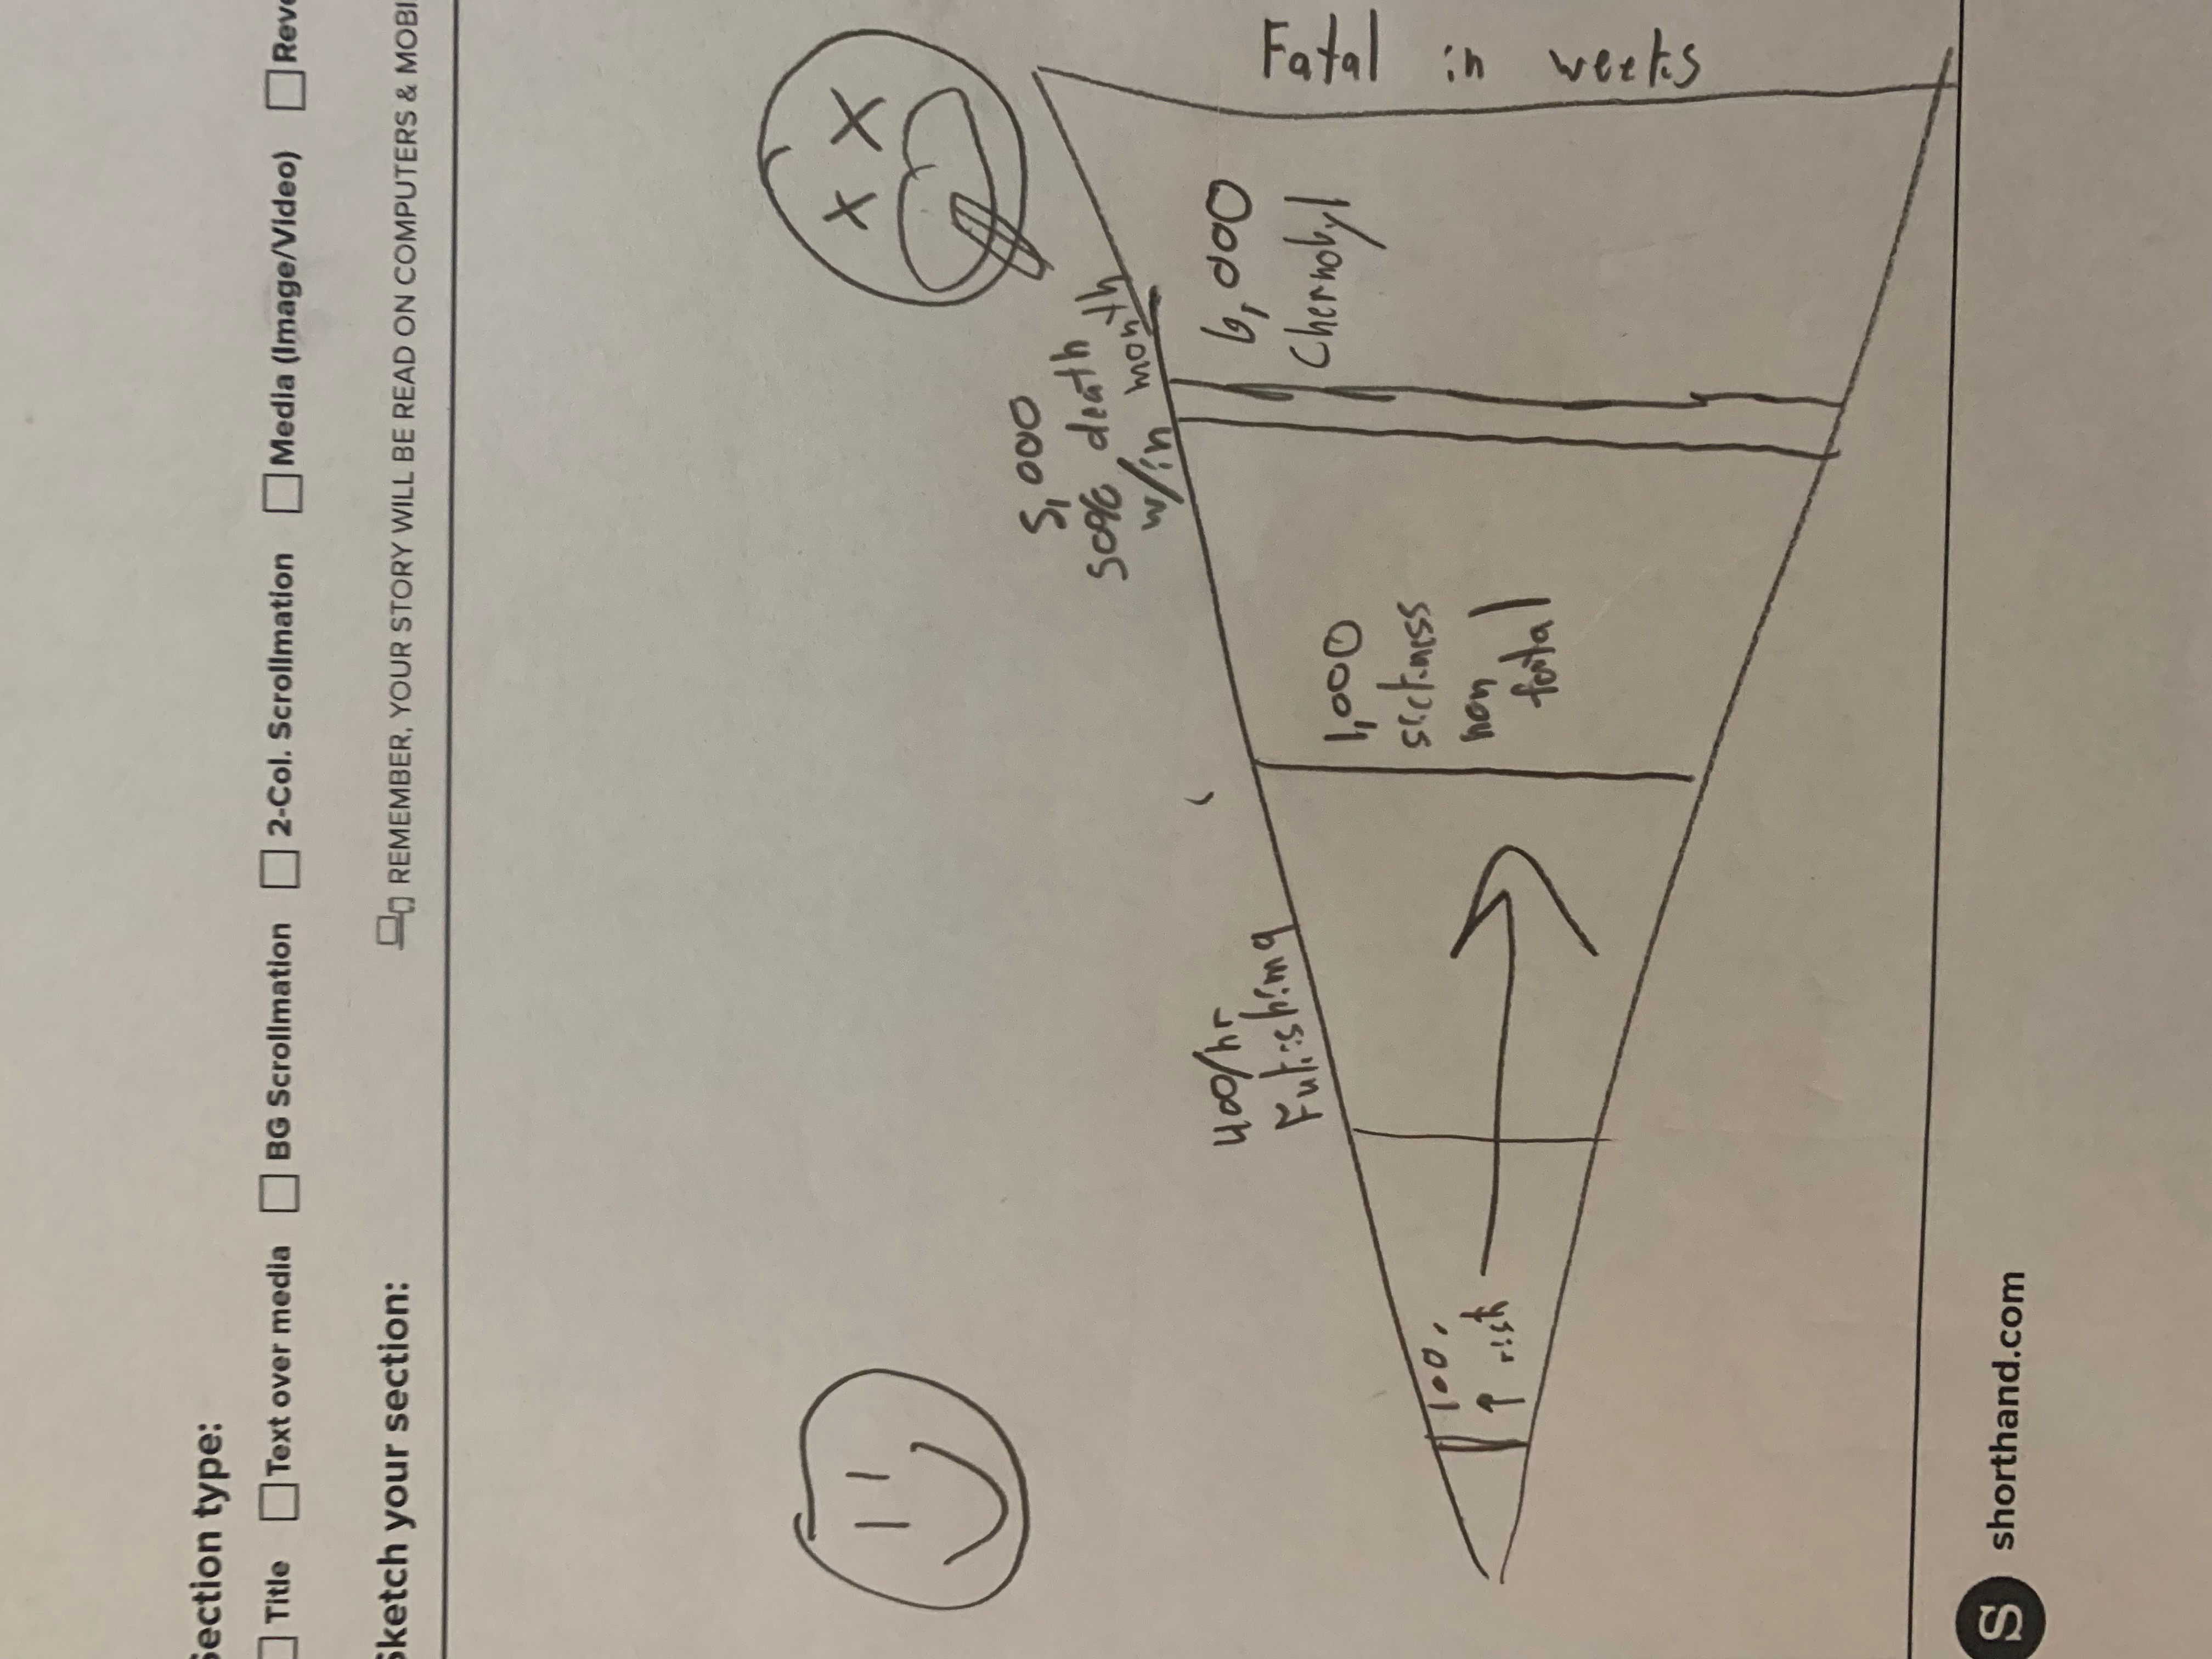 Section type:
Title Text over media BG Scrollmation 2-Col. Scrollmation Media (Image/Video) Reve
Sketch your section:
REMEMBER, YOUR STORY WILL BE READ ON COMPUTERS & MOBI
5,000
50% death
w/in month
400/hr
Fukishima
6,000
Chernobyl
1,000
sickness
non
fatal
100.
↑ risk
Fatal in weeks
S shorthand.com